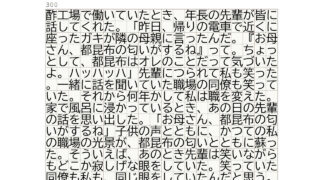 300
酢工場で働いていたとき、年長の先輩が皆に
話してくれた。「昨日、帰りの電車で近くに
座ったガキが隣の母親に言ったんだ。『お母
さん、都昆布の匂いがするね』って。ちょっ
として、都昆布はオレのことだって気づいた
よ。ハッハッハ」先輩につられて私も笑った
。一緒に話を聞いていた職場の同僚も笑って
いた。それから何年かして私は職を変えた。
家で風呂に浸かっているとき、あの日の先輩
の話を思い出した。「お母さん、都昆布の匂
いがするね」子供の声とともに、かつての私
の職場の光景が、都昆布の匂いとともに蘇っ
た。そういえば、あのとき先輩は笑いながら
もどこか寂しげな眼をしていた。笑っていた
同僚も私も、同じ眼をしていたんだと思う。